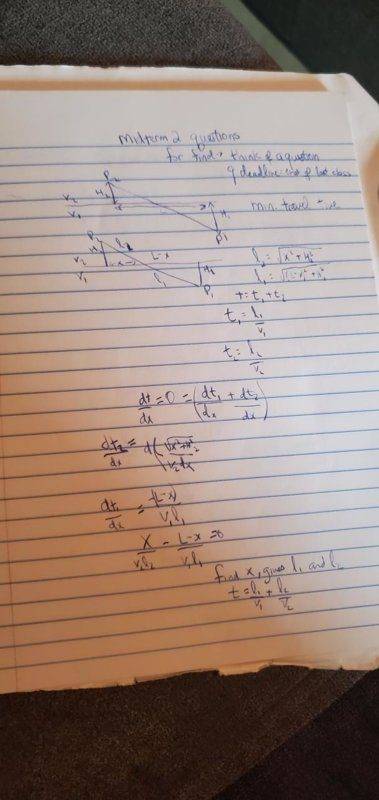 Midterm 2 questions
for final → think of a question
deadline: of last class
min. travel time
P2
H2
V2
V1
L
H1
P1
P2
H
l2
L-x
V2
x
V1
l1
H1
P1
l2 = √x²+H2²
l1 = √(L-x)²+H1²
t = t1 + t2
t1 = l1/V1
t2 = l2/V2
dt/dx = 0 = (dt1/dx + dt2/dx)
dt2/dx = d(√x²+H2²/V2dx
dt1/dx = -(L-x)/V1l1
x/V2l2 - L-x/V1l1 = 0
find x, gives l1 and l2
t = l1/V1 + l2/V2